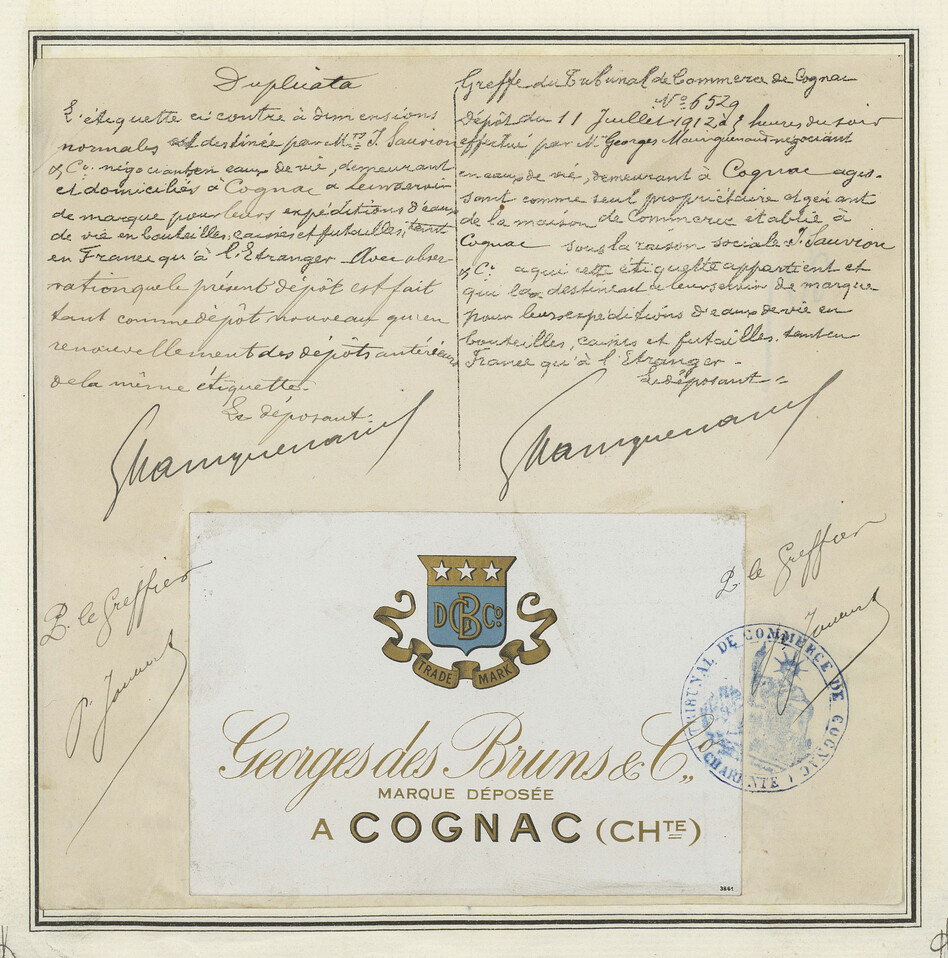 Duplicata
L'étiquette ci contre à dimensions
normales est destinée par Mrs J. Sauvion
& Co. négociants en eaux de vie, demeurant
et domiciliés à Cognac a leur servir
de marque pour leurs expéditions d'eaux
de vie en bouteilles, caisses et futailles, tant
en France qu'à l'Etranger. Avec obser-
vation que le présent dépôt est fait
tant comme dépôt nouveau qu'en
renouvellement des dépôts antérieurs
de la même étiquette.
Le déposant.
GMainguenaud
Greffe du Tribunal de Commerce de Cognac
No 6529
Dépôt du 11 Juillet 1912 à heures du soir
effectué par Mr Georges Mainguenaud négociant
en eaux de vié, demeurant à Cognac agis-
sant comme seul propriétaire et gérant
de la maison de Commerce établie à
Cognac sous la raison sociale J. Sauvion
& Co. a qui cette étiquette appartient et
qui la destinent a leur servir de marque
pour leurs expéditions d'eaux de vie en
bouteilles, caisses et futailles, tant en
France qu'à l'Etranger.
Le déposant
GMainguenaud
P. le Greffier
P. le Greffier
D GB Co
TRADE MARK
Georges des Bruns & Co,,
MARQUE DÉPOSÉE
A COGNAC (CHTE)
3861
TRIBUNAL DE COMMERCE DE COGNAC
(CHARENTE)